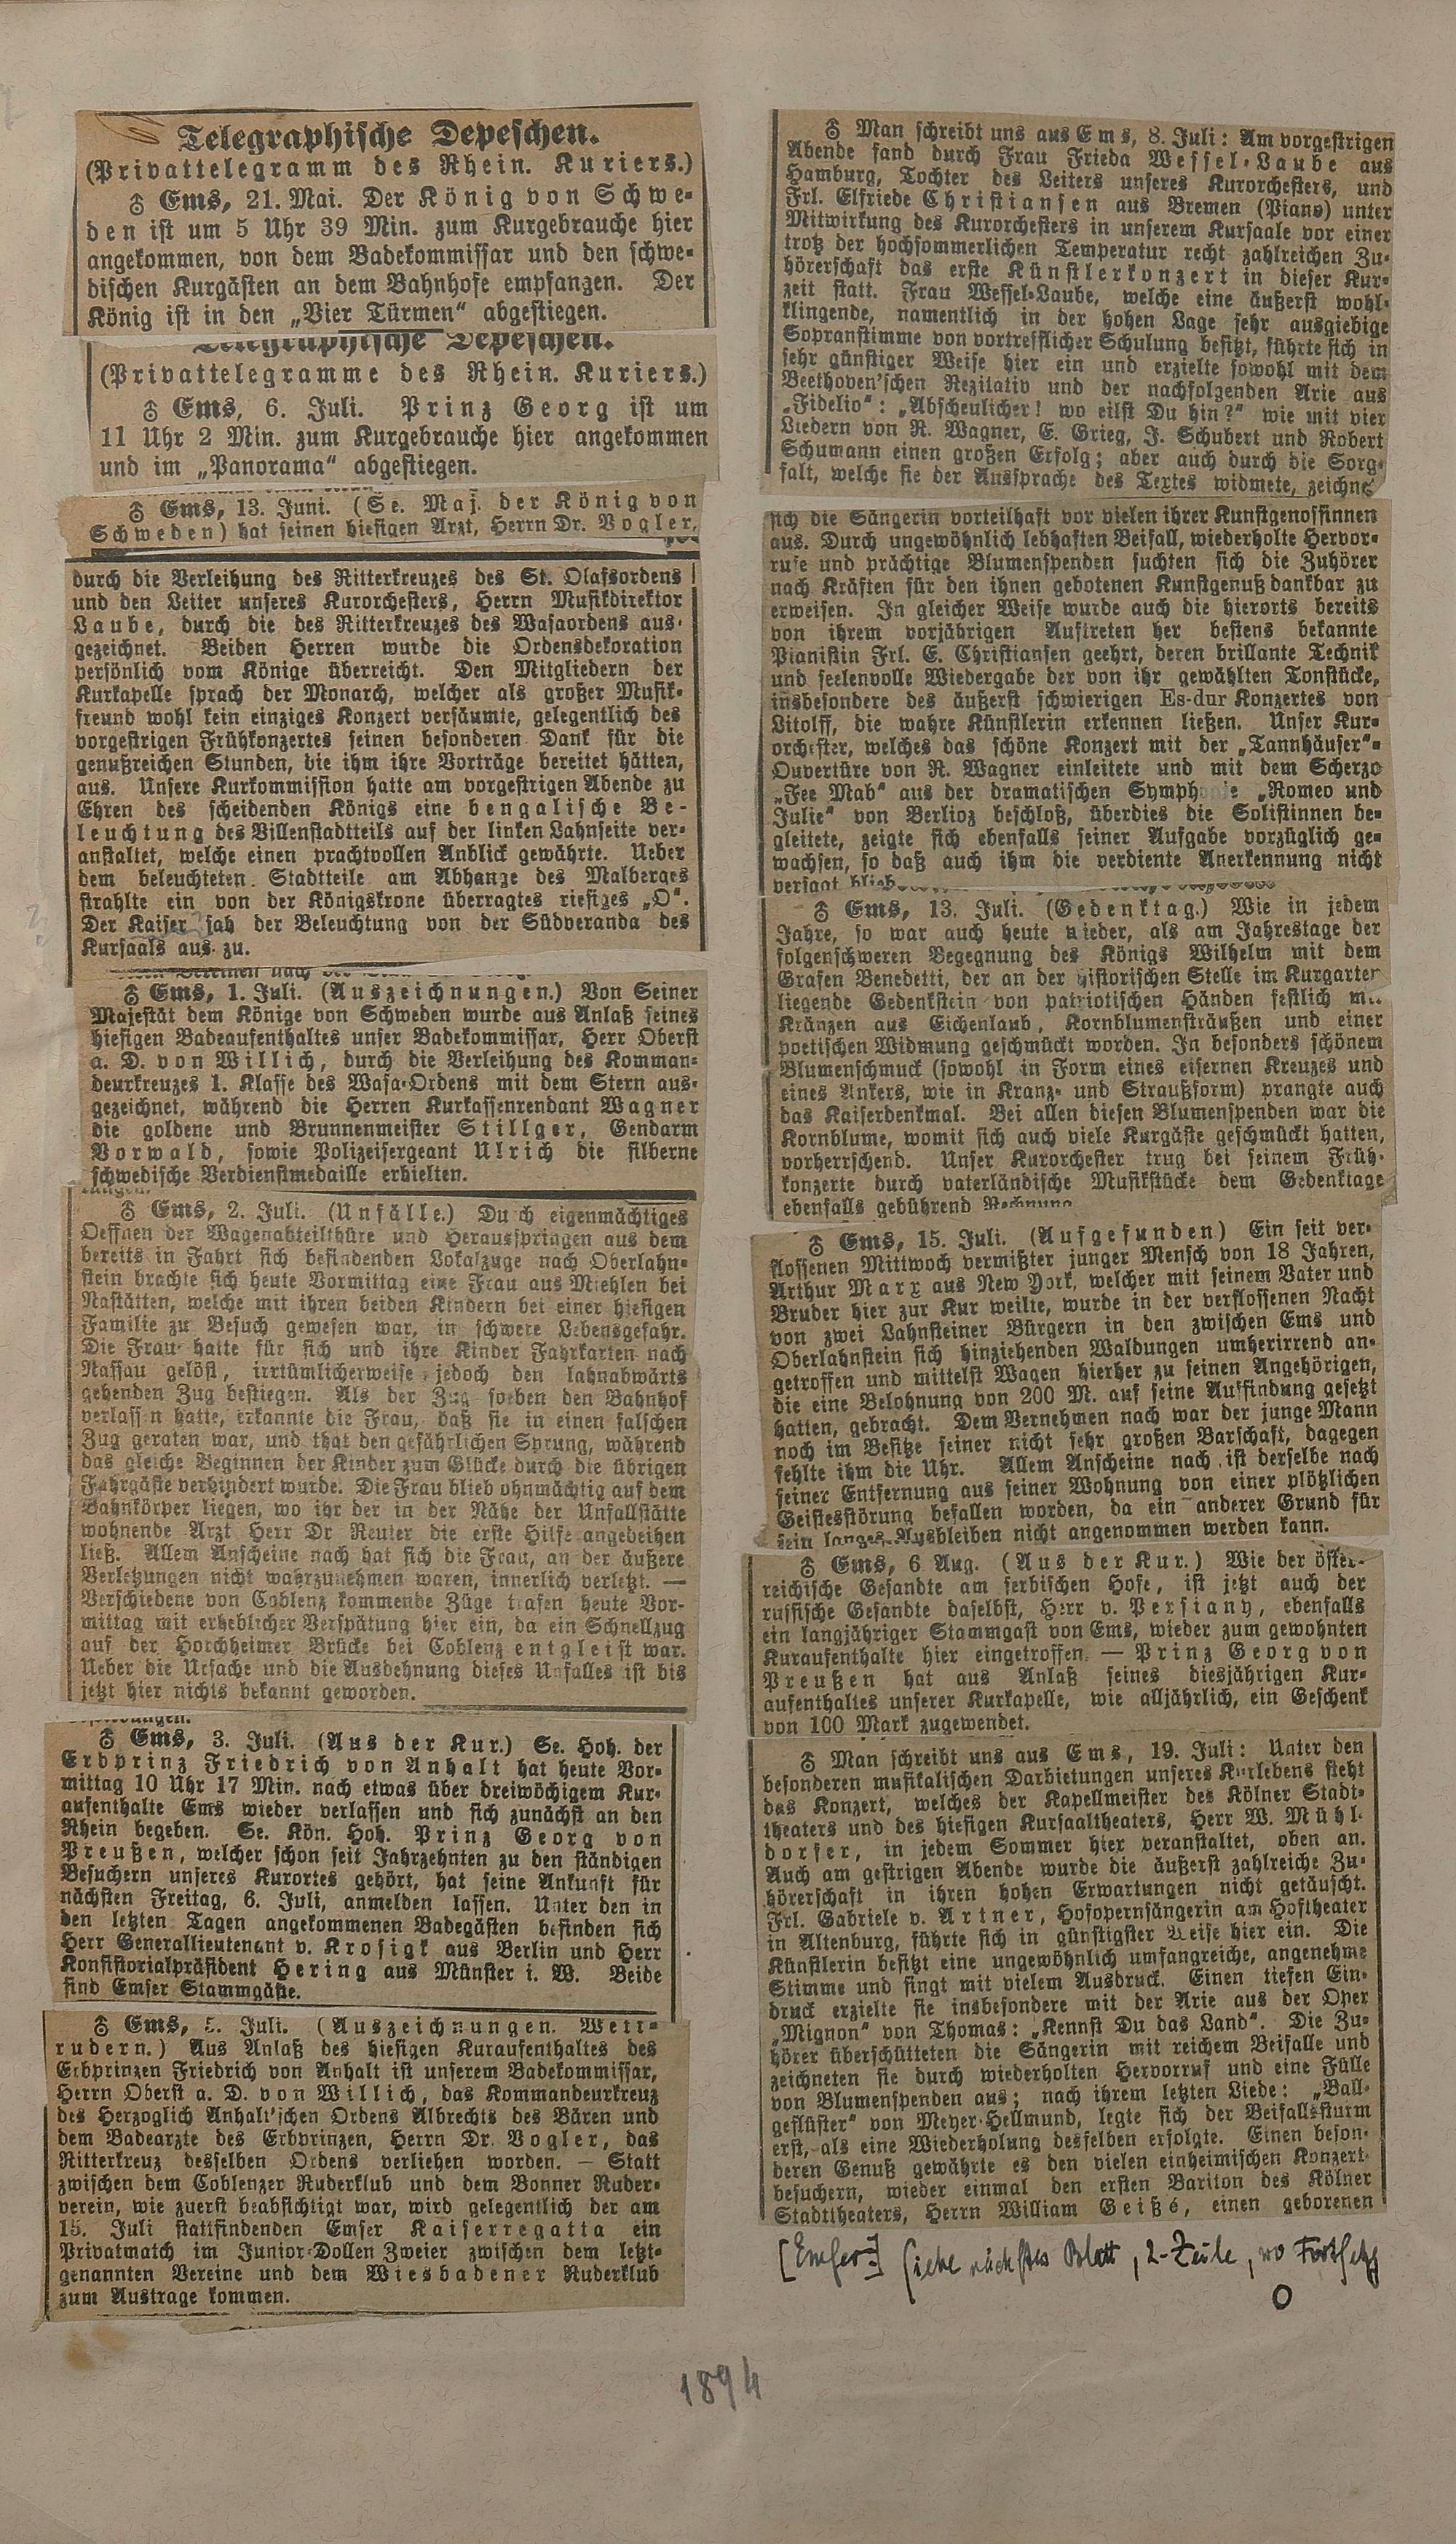 Telegraphische Depeschen.
(Privattelegramm des Rhein. Kuriers.)
♁ Ems, 21. Mai. Der König von Schwe-
den ist um 5 Uhr 39 Min. zum Kurgebrauche hier
angekommen, von dem Badekommissar und den schwe-
dischen Kurgästen an dem Bahnhofe empfangen. Der
König ist in den „Vier Türmen“ abgestiegen.
Telegraphische Depeschen.
(Privattelegramme des Rhein. Kuriers.)
♁ Ems, 6. Juli. Prinz Georg ist um
11 Uhr 2 Min. zum Kurgebrauche hier angekommen
und im „Panorama“ abgestiegen.
♁ Ems, 13. Juni. (Se. Maj. der König von
Schweden) hat seinen hiesigen Arzt, Herrn Dr. Vogler,
durch die Verleihung des Ritterkreuzes des St. Olafsordens
und den Leiter unseres Kurorchesters, Herrn Musikdirektor
Laube, durch die des Ritterkreuzes des Wasaordens aus-
gezeichnet. Beiden Herren wurde die Ordensdekoration
persönlich vom Könige überreicht. Den Mitgliedern der
Kurkapelle sprach der Monarch, welcher als großer Musik-
freund wohl kein einziges Konzert versäumte, gelegentlich des
vorgestrigen Frühkonzertes seinen besonderen Dank für die
genußreichen Stunden, die ihm ihre Vorträge bereitet hätten,
aus. Unsere Kurkommission hatte am vorgestrigen Abende zu
Ehren des scheidenden Königs eine bengalische Be-
leuchtung des Villenstadtteils auf der linken Lahnseite ver-
anstaltet, welche einen prachtvollen Anblick gewährte. Ueber
dem beleuchteten Stadtteile am Abhange des Malberges
strahlte ein von der Königskrone überragtes riesiges „O“.
Der Kaiser sah der Beleuchtung von der Südveranda des
Kursaals aus zu.
♁ Ems, 1. Juli. (Auszeichnungen.) Von Seiner
Majestät dem Könige von Schweden wurde aus Anlaß seines
hiesigen Badeaufenthaltes unser Badekommissar, Herr Oberst
a. D. von Willich, durch die Verleihung des Komman-
deurkreuzes 1. Klasse des Wasa-Ordens mit dem Stern aus-
gezeichnet, während die Herren Kurkassenrendant Wagner
die goldene und Brunnenmeister Stillger, Gendarm
Vorwald, sowie Polizeisergeant Ulrich die silberne
schwedische Verdienstmedaille erhielten.
♁ Ems, 2. Juli. (Unfälle.) Durch eigenmächtiges
Oeffnen der Wagenabteilthüre und Herausspringen aus dem
bereits in Fahrt sich befindenden Lokalzuge nach Oberlahn-
stein brachte sich heute Vormittag eine Frau aus Miehlen bei
Nastätten, welche mit ihren beiden Kindern bei einer hiesigen
Familie zu Besuch gewesen war, in schwere Lebensgefahr.
Die Frau hatte für sich und ihre Kinder Fahrkarten nach
Nassau gelöst, irrtümlicherweise jedoch den lahnabwärts
gehenden Zug bestiegen. Als der Zug soeben den Bahnhof
verlassen hatte, erkannte die Frau, daß sie in einen falschen
Zug geraten war, und that den gefährlichen Sprung, während
das gleiche Beginnen der Kinder zum Glücke durch die übrigen
Fahrgäste verhindert wurde. Die Frau blieb ohnmächtig auf dem
Bahnkörper liegen, wo ihr der in der Nähe der Unfallstätte
wohnende Arzt Herr Dr Reuter die erste Hilfe angedeihen
ließ. Allem Anscheine nach hat sich die Frau, an der äußere
Verletzungen nicht wahrzunehmen waren, innerlich verletzt. —
Verschiedene von Coblenz kommende Züge trafen heute Vor-
mittag mit erheblicher Verspätung hier ein, da ein Schnellzug
auf der Horchheimer Brücke bei Coblenz entgleist war.
Ueber die Ursache und die Ausdehnung dieses Unfalles ist bis
jetzt hier nichts bekannt geworden.
♁ Ems, 3. Juli. (Aus der Kur.) Se. Hoh. der
Erbprinz Friedrich von Anhalt hat heute Vor-
mittag 10 Uhr 17 Min. nach etwas über dreiwöchigem Kur-
aufenthalte Ems wieder verlassen und sich zunächst an den
Rhein begeben. Se. Kön. Hoh. Prinz Georg von
Preußen, welcher schon seit Jahrzehnten zu den ständigen
Besuchern unseres Kurortes gehört, hat seine Ankunft für
nächsten Freitag, 6. Juli, anmelden lassen. Unter den in
den letzten Tagen angekommenen Badegästen befinden sich
Herr Generallieutenant v. Krosigk aus Berlin und Herr
Konsistorialpräsident Hering aus Münster i. W. Beide
sind Emser Stammgäste.
♁ Ems, 5. Juli. (Auszeichnungen. Wett-
rudern.) Aus Anlaß des hiesigen Kuraufenthaltes des
Erbprinzen Friedrich von Anhalt ist unserem Badekommissar,
Herrn Oberst a. D. von Willich, das Kommandeurkreuz
des Herzoglich Anhalt'schen Ordens Albrechts des Bären und
dem Badearzte des Erbprinzen, Herrn Dr. Vogler, das
Ritterkreuz desselben Ordens verliehen worden. — Statt
zwischen dem Coblenzer Ruderklub und dem Bonner Ruder-
verein, wie zuerst beabsichtigt war, wird gelegentlich der am
15. Juli stattfindenden Emser Kaiserregatta ein
Privatmatch im Junior-Dollen Zweier zwischen dem letzt-
genannten Vereine und dem Wiesbadener Ruderklub
zum Austrage kommen.
♁ Man schreibt uns aus Ems, 8. Juli: Am vorgestrigen
Abende fand durch Frau Frieda Wessel-Laube aus
Hamburg, Tochter des Leiters unseres Kurorchesters, und
Frl. Elfriede Christiansen aus Bremen (Piano) unter
Mitwirkung des Kurorchesters in unserem Kursaale vor einer
trotz der hochsommerlichen Temperatur recht zahlreichen Zu-
hörerschaft das erste Künstlerkonzert in dieser Kur-
zeit statt. Frau Wessel-Laube, welche eine äußerst wohl-
klingende, namentlich in der hohen Lage sehr ausgiebige
Sopranstimme von vortrefflicher Schulung besitzt, führte sich in
sehr günstiger Weise hier ein und erzielte sowohl mit dem
Beethoven'schen Rezitativ und der nachfolgenden Arie aus
„Fidelio“: „Abscheulicher! wo eilst Du hin?“ wie mit vier
Liedern von R. Wagner, E. Grieg, J. Schubert und Robert
Schumann einen großen Erfolg; aber auch durch die Sorg-
falt, welche sie der Aussprache des Textes widmete, zeichne
sich die Sängerin vorteilhaft vor vielen ihrer Kunstgenossinnen
aus. Durch ungewöhnlich lebhaften Beifall, wiederholte Hervor-
rufe und prächtige Blumenspenden suchten sich die Zuhörer
nach Kräften für den ihnen gebotenen Kunstgenuß dankbar zu
erweisen. In gleicher Weise wurde auch die hierorts bereits
von ihrem vorjährigen Auftreten her bestens bekannte
Pianistin Frl. E. Christiansen geehrt, deren brillante Technik
und seelenvolle Wiedergabe der von ihr gewählten Tonstücke,
insbesondere des äußerst schwierigen Es-dur Konzertes von
Litolff, die wahre Künstlerin erkennen ließen. Unser Kur-
orchester, welches das schöne Konzert mit der „Tannhäuser“-
Ouvertüre von R. Wagner einleitete und mit dem Scherzo
„Fee Mab“ aus der dramatischen Symphonie „Romeo und
Julie“ von Berlioz beschloß, überdies die Solistinnen be-
gleitete, zeigte sich ebenfalls seiner Aufgabe vorzüglich ge-
wachsen, so daß auch ihm die verdiente Anerkennung nicht
versagt blieb.
♁ Ems, 13. Juli. (Gedenktag.) Wie in jedem
Jahre, so war auch heute wieder, als am Jahrestage der
folgenschweren Begegnung des Königs Wilhelm mit dem
Grafen Benedetti, der an der historischen Stelle im Kurgarten
liegende Gedenkstein von patriotischen Händen festlich mit
Kränzen aus Eichenlaub, Kornblumensträußen und einer
poetischen Widmung geschmückt worden. In besonders schönem
Blumenschmuck (sowohl in Form eines eisernen Kreuzes und
eines Ankers, wie in Kranz- und Straußform) prangte auch
das Kaiserdenkmal. Bei allen diesen Blumenspenden war die
Kornblume, womit sich auch viele Kurgäste geschmückt hatten,
vorherrschend. Unser Kurorchester trug bei seinem Früh-
konzerte durch vaterländische Musikstücke dem Gedenktage
ebenfalls gebührend Rechnung
♁ Ems, 15. Juli. (Aufgefunden) Ein seit ver-
flossenen Mittwoch vermißter junger Mensch von 18 Jahren,
Arthur Marx aus New York, welcher mit seinem Vater und
Bruder hier zur Kur weilte, wurde in der verflossenen Nacht
von zwei Lahnsteiner Bürgern in den zwischen Ems und
Oberlahnstein sich hinziehenden Waldungen umherirrend an-
getroffen und mittelst Wagen hierher zu seinen Angehörigen,
die eine Belohnung von 200 M. auf seine Auffindung gesetzt
hatten, gebracht. Dem Vernehmen nach war der junge Mann
noch im Besitze seiner nicht sehr großen Barschaft, dagegen
fehlte ihm die Uhr. Allem Anscheine nach ist derselbe nach
seiner Entfernung aus seiner Wohnung von einer plötzlichen
Geistesstörung befallen worden, da ein anderer Grund für
sein langes Ausbleiben nicht angenommen werden kann.
♁ Ems, 6. Aug. (Aus der Kur.) Wie der öster-
reichische Gesandte am serbischen Hofe, ist jetzt auch der
russische Gesandte daselbst, Herr v. Persiany, ebenfalls
ein langjähriger Stammgast von Ems, wieder zum gewohnten
Kuraufenthalte hier eingetroffen. — Prinz Georg von
Preußen hat aus Anlaß seines diesjährigen Kur-
aufenthaltes unserer Kurkapelle, wie alljährlich, ein Geschenk
von 100 Mark zugewendet.
♁ Man schreibt uns aus Ems, 19. Juli: Unter den
besonderen musikalischen Darbietungen unseres Kurlebens steht
das Konzert, welches der Kapellmeister des Kölner Stadt-
theaters und des hiesigen Kursaaltheaters, Herr W. Mühl-
dorfer, in jedem Sommer hier veranstaltet, oben an.
Auch am gestrigen Abende wurde die äußerst zahlreiche Zu-
hörerschaft in ihren hohen Erwartungen nicht getäuscht.
Frl. Gabriele v. Artner, Hofopernsängerin am Hoftheater
in Altenburg, führte sich in günstigster Weise hier ein. Die
Künstlerin besitzt eine ungewöhnlich umfangreiche, angenehme
Stimme und singt mit vielem Ausdruck. Einen tiefen Ein-
druck erzielte sie insbesondere mit der Arie aus der Oper
„Mignon“ von Thomas: „Kennst Du das Land“. Die Zu-
hörer überschütteten die Sängerin mit reichem Beifalle und
zeichneten sie durch wiederholten Hervorruf und eine Fülle
von Blumenspenden aus; nach ihrem letzten Liede: „Ball-
geflüster“ von Meyer-Hellmund, legte sich der Beifallssturm
erst, als eine Wiederholung desselben erfolgte. Einen beson-
deren Genuß gewährte es den vielen einheimischen Konzert-
besuchern, wieder einmal den ersten Bariton des Kölner
Stadttheaters, Herrn William Geißé, einen geborenen
[Emser] siehe nächstes Blatt, 2-Zeile, wo Fortsetzg
O
1894